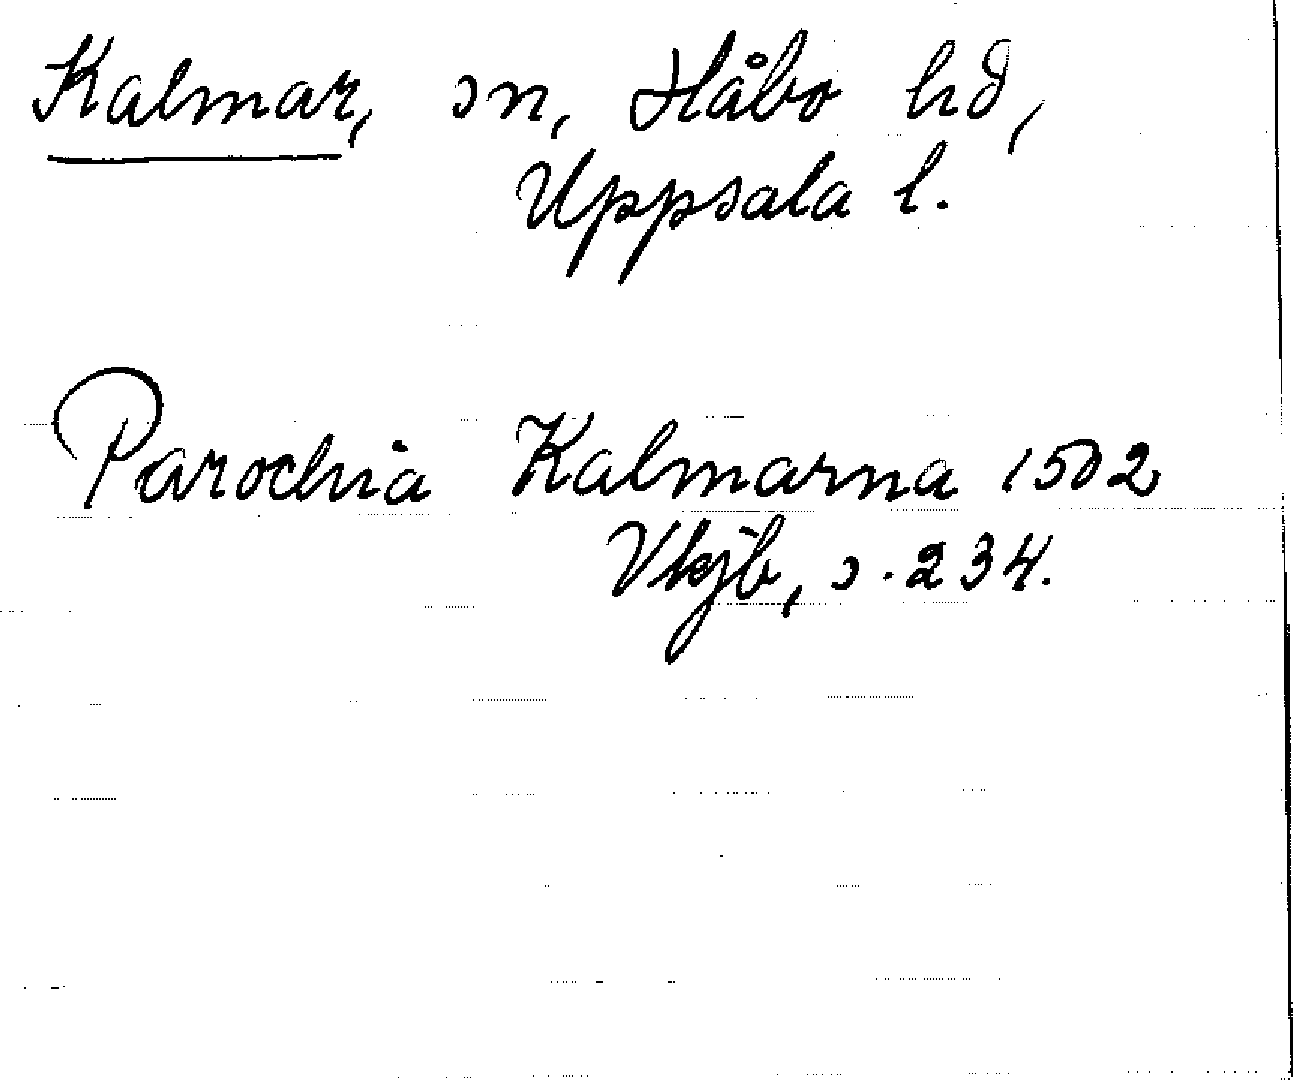 Kalmar, sn, Håbo hd,
Uppsala l.
Parochia Kalmarna 1502
Vkjb, s. 234.